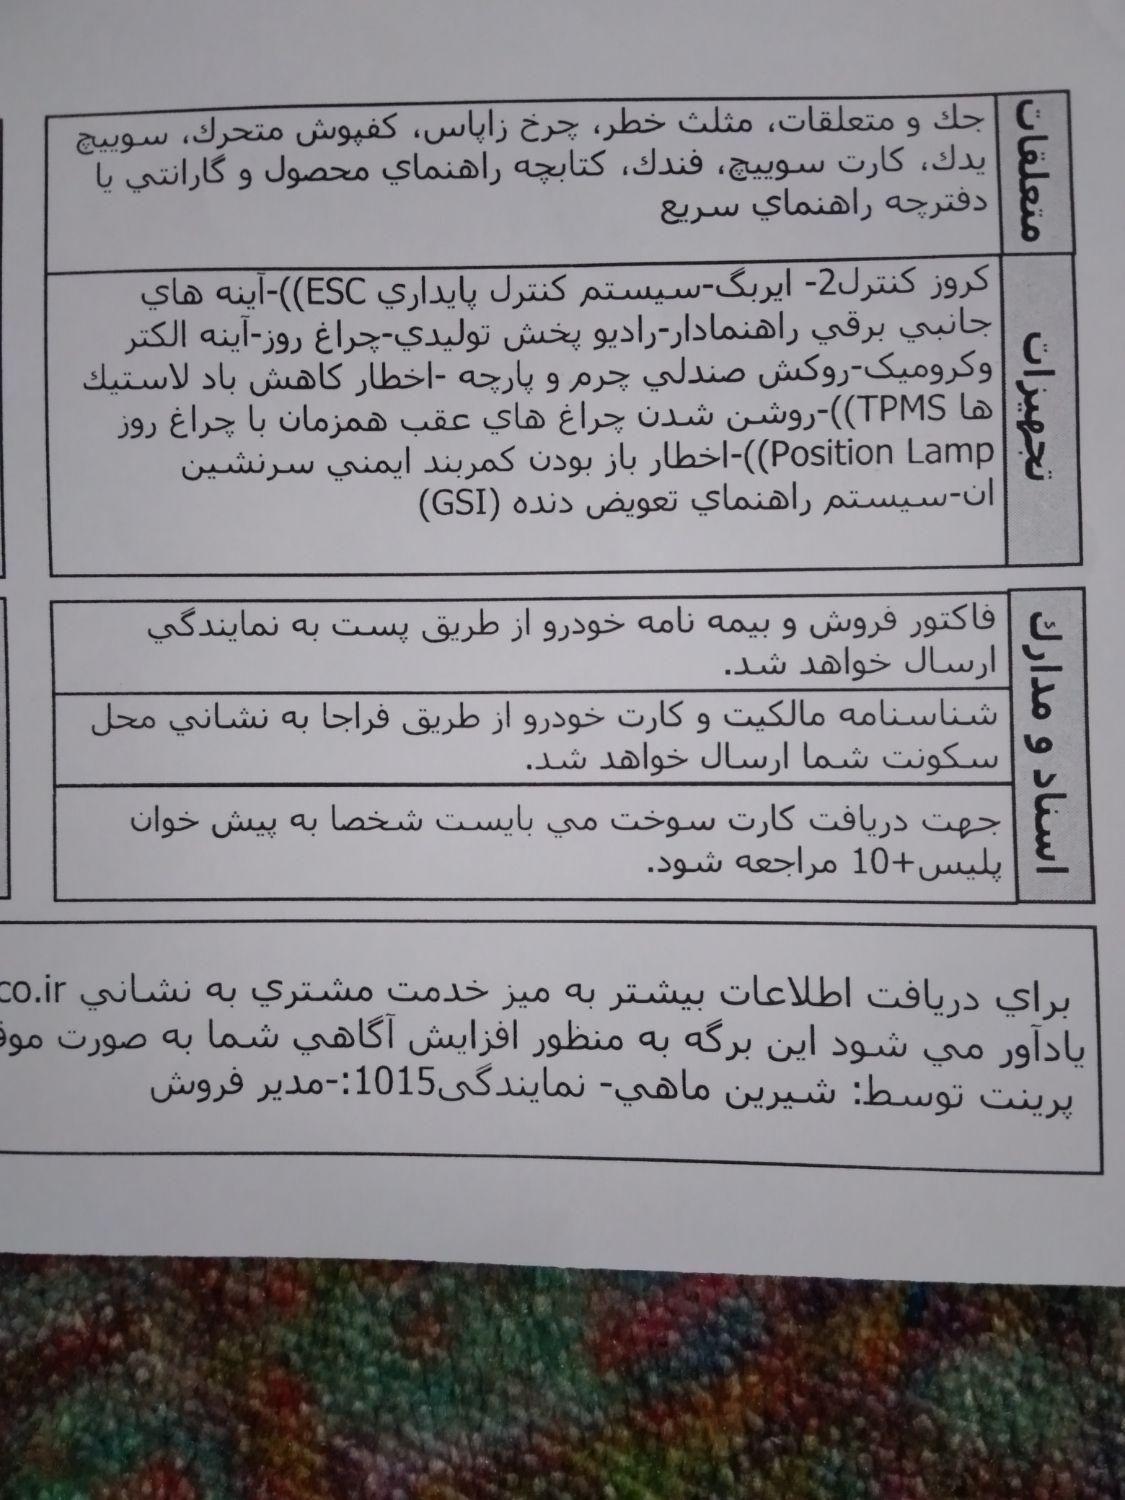 متعلقات
جك و متعلقات، مثلث خطر، چرخ زاپاس، كفپوش متحرك، سوييچ
يدك، كارت سوييچ، فندك، كتابچه راهنماي محصول و گارانتي يا
دفترچه راهنماي سريع
تجهيزات
كروز كنترل2- ايربگ-سيستم كنترل پايداري ESC))-آينه هاي
جانبي برقي راهنمادار-راديو پخش توليدي-چراغ روز-آينه الكتر
وكروميک-روكش صندلي چرم و پارچه -اخطار كاهش باد لاستيك
ها TPMS))-روشن شدن چراغ هاي عقب همزمان با چراغ روز
Position Lamp))-اخطار باز بودن كمربند ايمني سرنشين
ان-سيستم راهنماي تعويض دنده (GSI)
اسناد و مدارك
فاكتور فروش و بيمه نامه خودرو از طريق پست به نمايندگي
ارسال خواهد شد.
شناسنامه مالكيت و كارت خودرو از طريق فراجا به نشاني محل
سكونت شما ارسال خواهد شد.
جهت دريافت كارت سوخت مي بايست شخصا به پيش خوان
پليس+10 مراجعه شود.
براي دريافت اطلاعات بيشتر به ميز خدمت مشتري به نشاني co.ir
يادآور مي شود اين برگه به منظور افزايش آگاهي شما به صورت
پرينت توسط: شيرين ماهي- نمايندگی1015:-مدير فروش